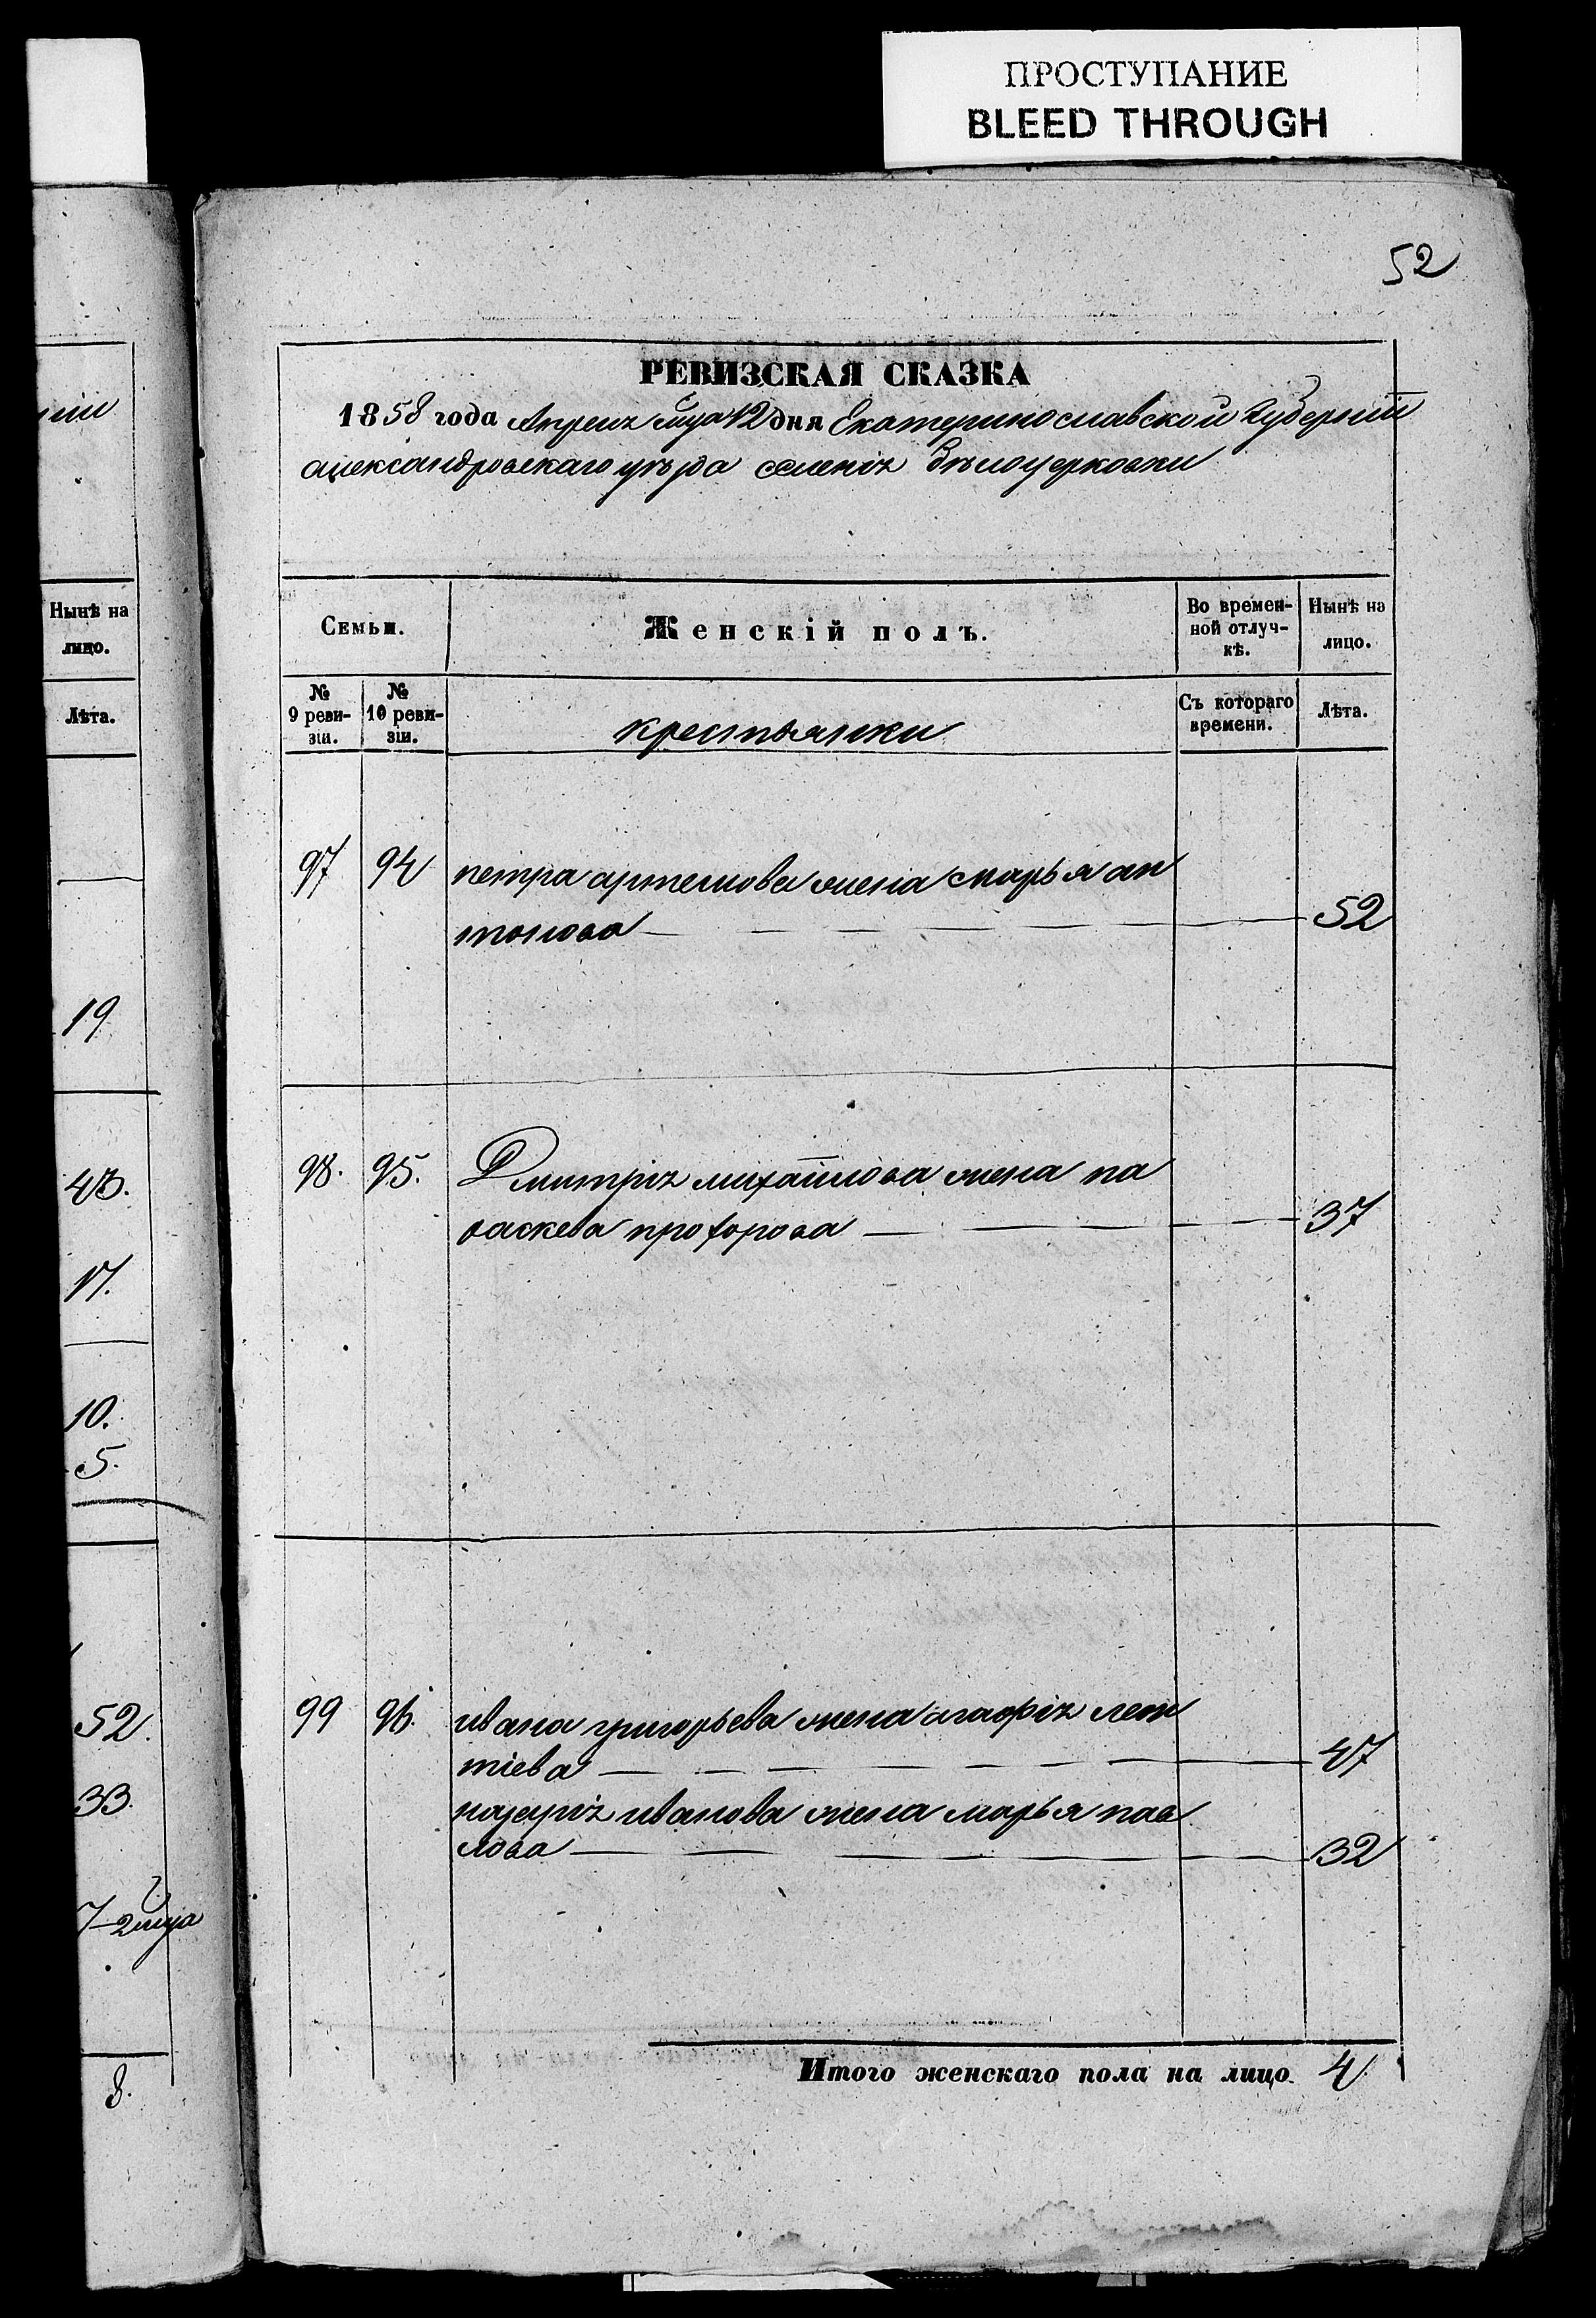 ПРОСТУПАНИЕ
BLEED THROUGH
52
РЕВИЗСКАЯ СКАЗКА
1858 года Апреля мца 12 дня Екатеринославской Губерніи
александровскаго уѣзда селенія бѣлоцерковки
Нынѣ на
лицо.
Лѣта.
19
43.
17.
10.
5.
52.
33.
7-2 мца
8.
Семьи.
Женскій полъ.
Во времен-
ной отлуч-
кѣ.
Нынѣ на
лицо.
№
9 реви-
зіи.
№
10 реви-
зіи.
крестьянки
Съ котораго
времени.
Лѣта.
97 94 петра артемова жена марья ан
тонова 52
98. 95. Дмитрія михайлова жена па
раскева прохорова 37
99 96. ивана григорьева жена агафія леон
тіева 47
назарія иванова жена марья пав
лова 32
Итого женскаго пола на лицо 4